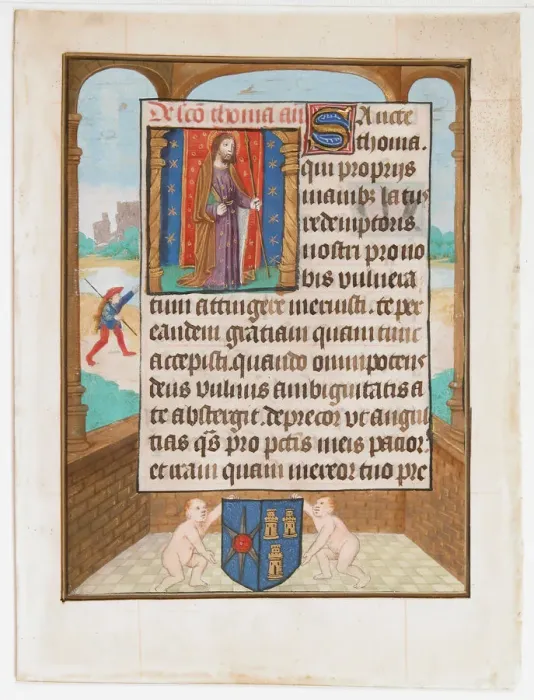 De scō thoma añ
Sancte
thoma.
qui proprijs
manibꝫ latus
redemptoris
nostri pro no
bis vulnera
tum attingere meruisti. te per
eandem grātiam quam tunc
accepisti. quando omnipotens
deus vulnus ambiguitatis a
te abstergit. deprecor vt angus
tias qs̄ pro pctīs meis patior.
et iram quam mereor tuo pre